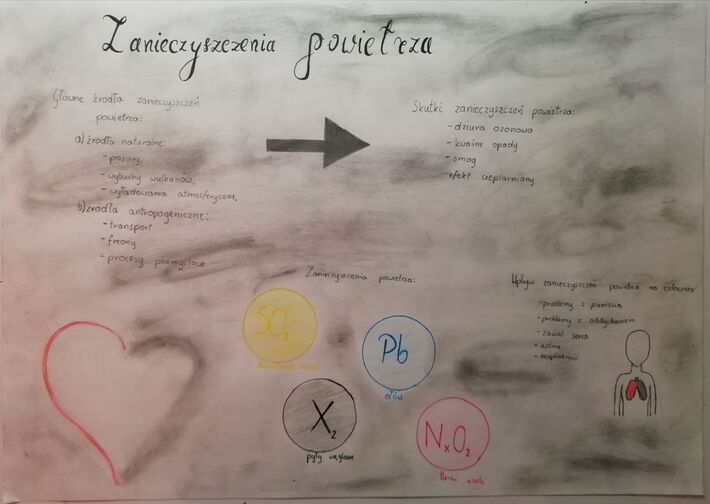 Zanieczyszczenia powietrza
Główne źródła zanieczyszczeń
powietrza:
a) źródła naturalne:
- pożary,
- wybuchy wulkanów,
- wyładowania atmosferyczne,
b) źródła antropogeniczne:
- transport
- freony
- procesy przemysłowe
Skutki zanieczyszczeń powietrza:
- dziura ozonowa
- kwaśne opady
- smog
- efekt cieplarniany
Zanieczyszczenia powietrza:
SO2
Pb
ołów
X2
pyły węglowe
NxO2
tlenki azotu
Wpływ zanieczyszczeń powietrza na człowieka
- problemy z pamięcią
- problemy z oddychaniem
- zawał serca
- astma
- bezpłodność